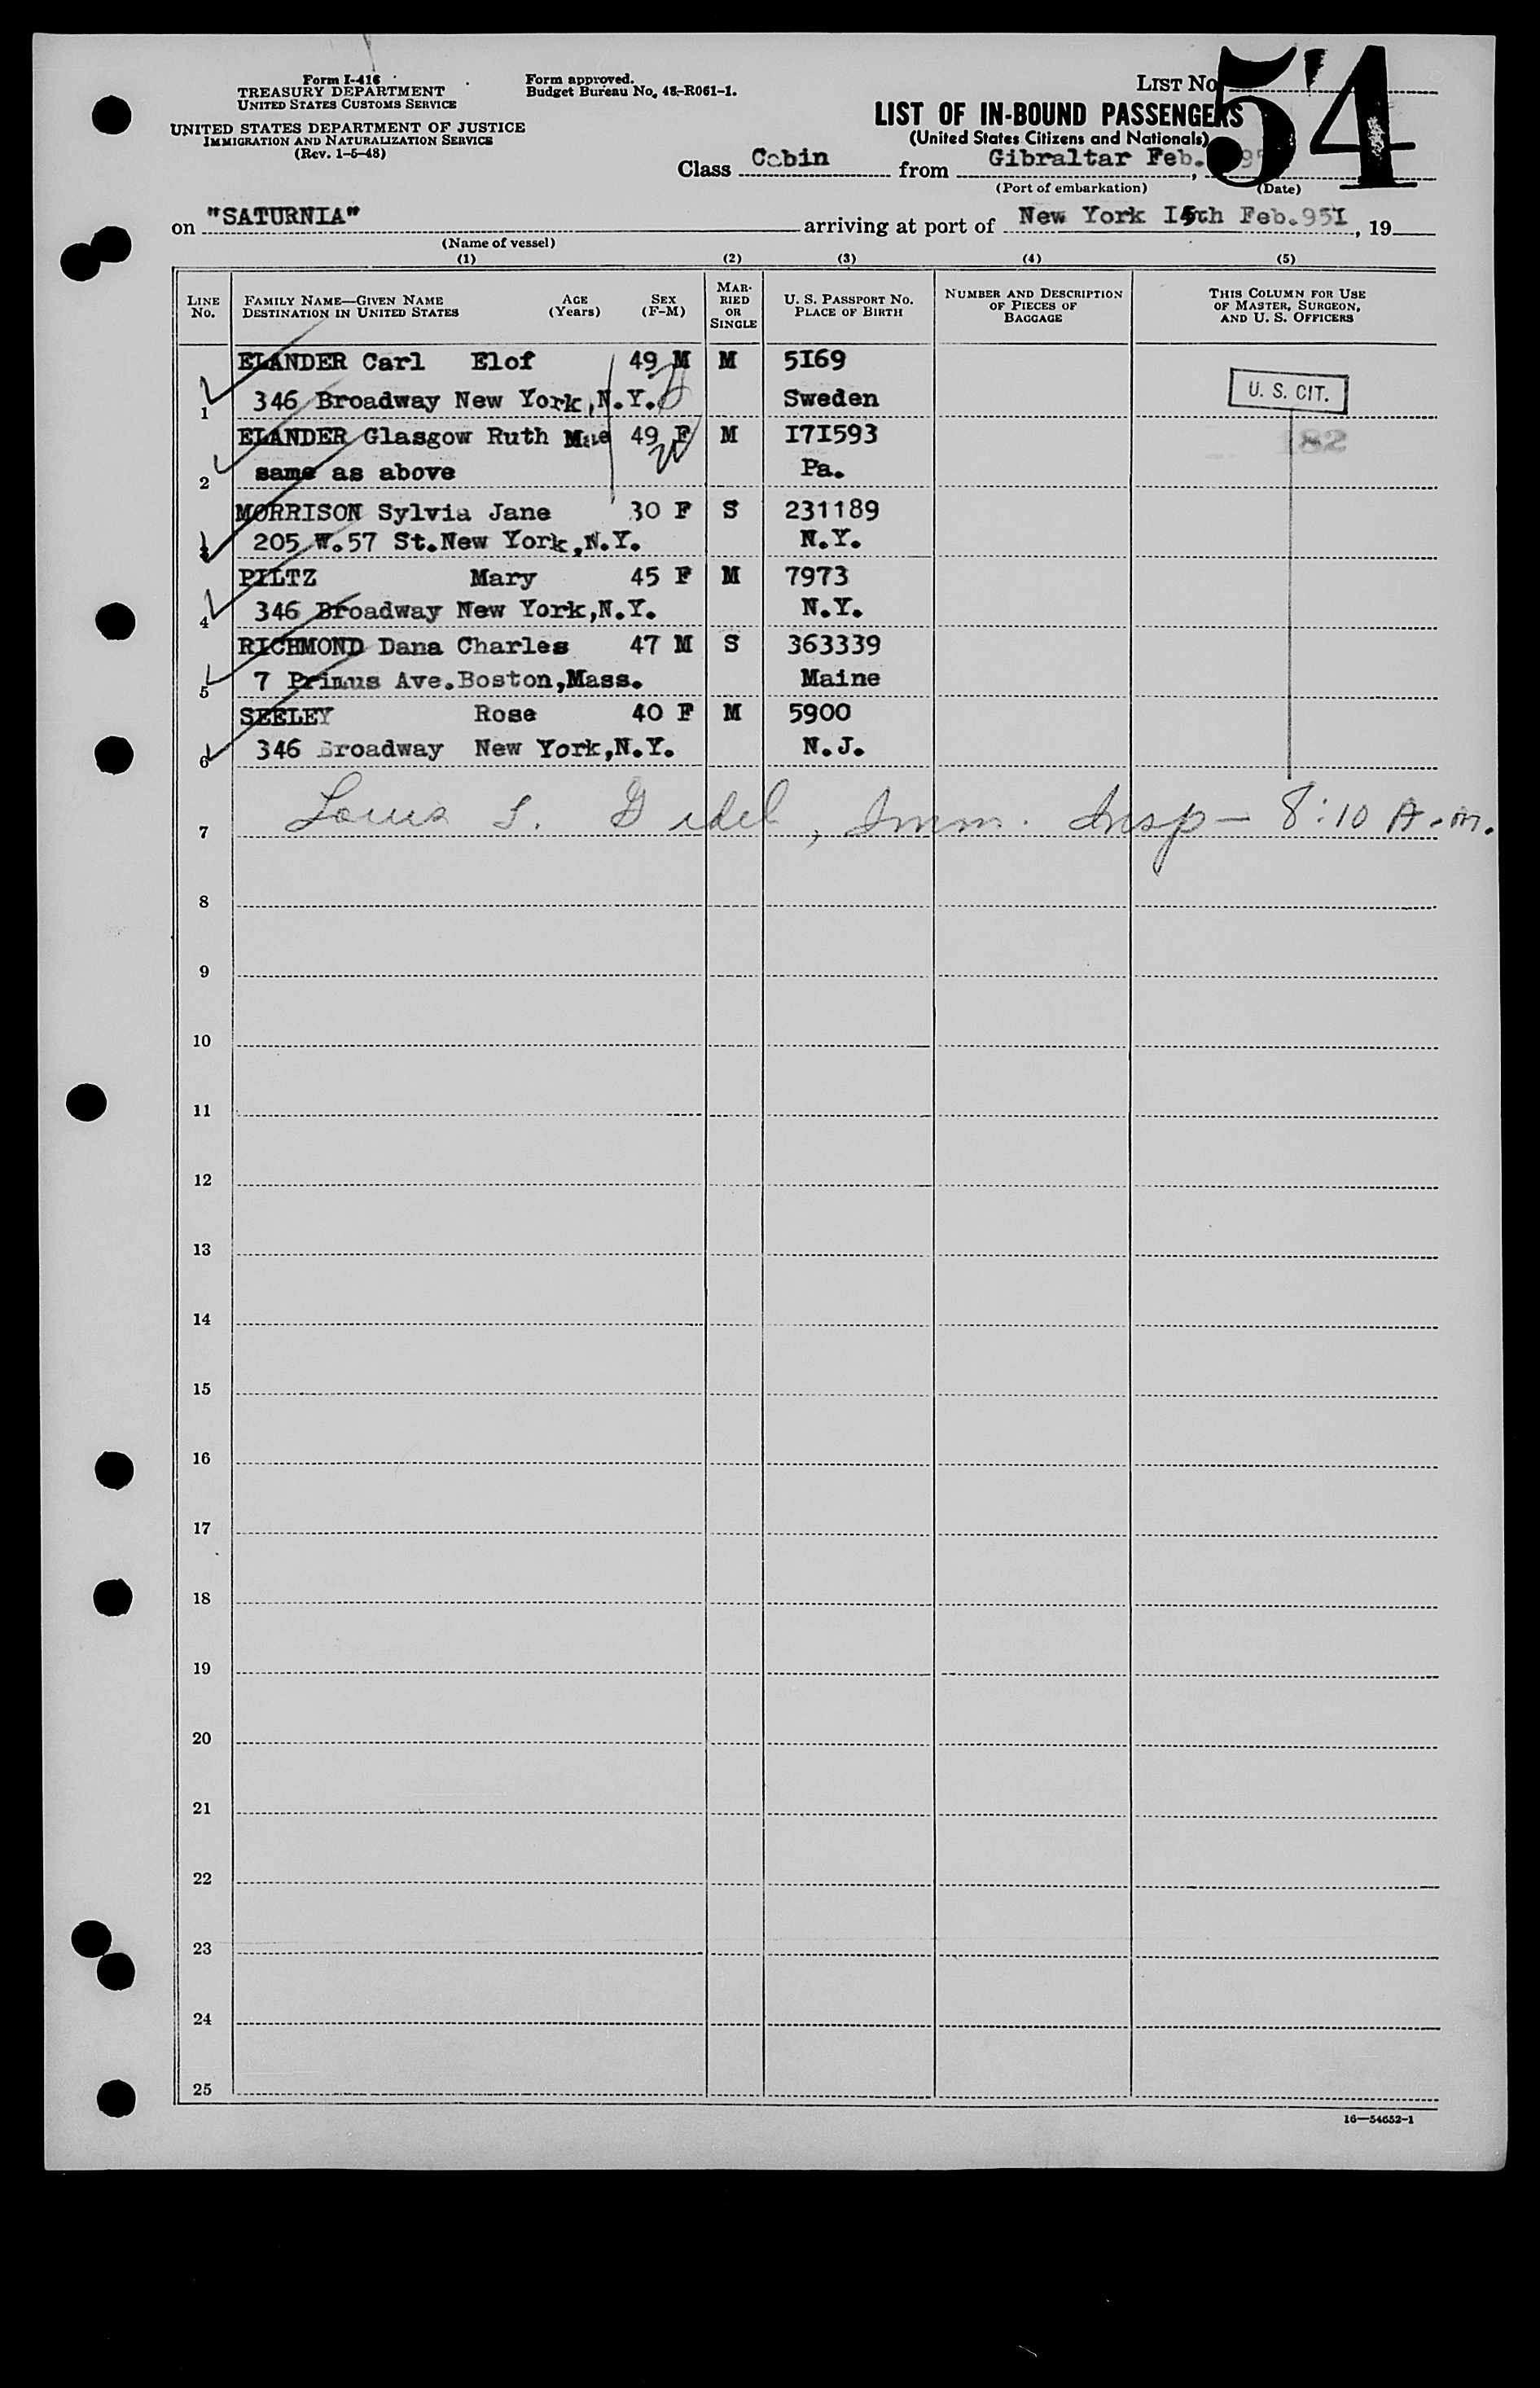 Form I-416
TREASURY DEPARTMENT
UNITED STATES CUSTOMS SERVICE
UNITED STATES DEPARTMENT OF JUSTICE
IMMIGRATION AND NATURALIZATION SERVICE
(Rev. 1-5-48)
Form approved.
Budget Bureau No. 43-R061-1.
LIST No. 54
LIST OF IN-BOUND PASSENGERS
(United States Citizens and Nationals)
Class Cabin from Gibraltar Feb.
(Port of embarkation) (Date)
on "SATURNIA" arriving at port of New York I5th Feb.95I, 19
(Name of vessel)
(1) (2) (3) (4) (5)
LINE No. FAMILY NAME—GIVEN NAME DESTINATION IN UNITED STATES AGE (Years) SEX (F-M) MARRIED OR SINGLE U. S. PASSPORT No. PLACE OF BIRTH NUMBER AND DESCRIPTION OF PIECES OF BAGGAGE THIS COLUMN FOR USE OF MASTER, SURGEON, AND U. S. OFFICERS
ELANDER Carl Elof 49 M M 5I69
1 346 Broadway New York,N.Y. Sweden U. S. CIT.
ELANDER Glasgow Ruth Mae 49 F M I7I593 182
2 same as above Pa.
MORRISON Sylvia Jane 30 F S 231189
3 205 W.57 St.New York,N.Y. N.Y.
PILTZ Mary 45 F M 7973
4 346 Broadway New York,N.Y. N.Y.
RICHMOND Dana Charles 47 M S 363339
5 7 Primus Ave.Boston,Mass. Maine
SEELEY Rose 40 F M 5900
6 346 Broadway New York,N.Y. N.J.
7 Louis S. , Imm. Insp — 8:10 A.m.
8
9
10
11
12
13
14
15
16
17
18
19
20
21
22
23
24
25
16—54652-1